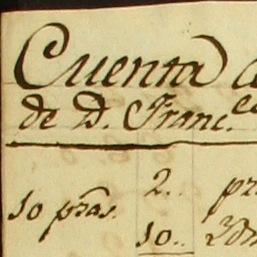 Cuenta
de D. Franc.co
2..
10 pzas.
10..